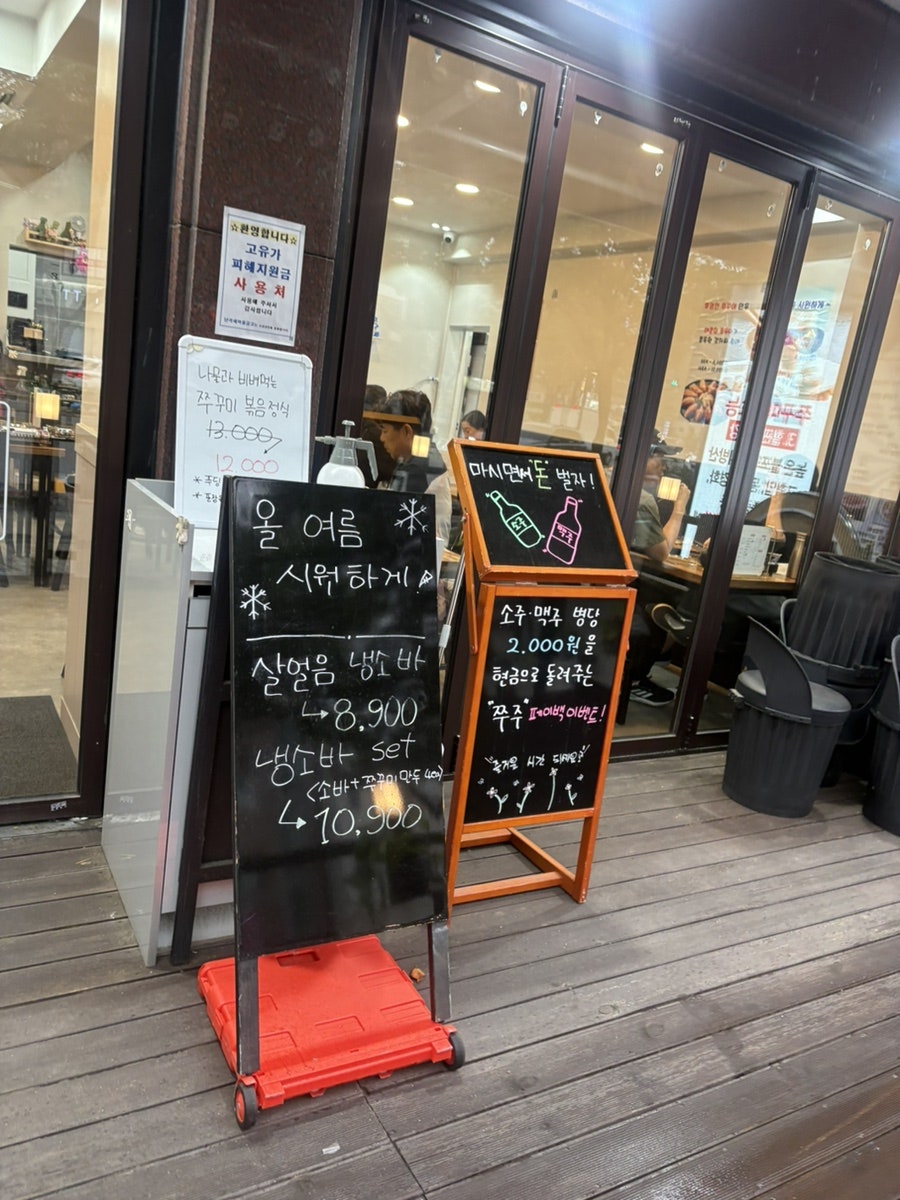 ☆환영합니다☆
고유가
피해지원금
사용처
사용해 주셔서
감사합니다
나물과 비벼먹는
쭈꾸미 볶음정식
13.000
12.000
올 여름
시원하게!
살얼음 냉소바
↳8,900
냉소바 set
(소바+쭈꾸미만두 4ea)
↳10,900
마시면서 "돈" 벌자!
소주
맥주
소주·맥주 병당
2.000원을
현금으로 돌려주는
"쭈주" 페이백 이벤트!
즐거운 시간 되세요